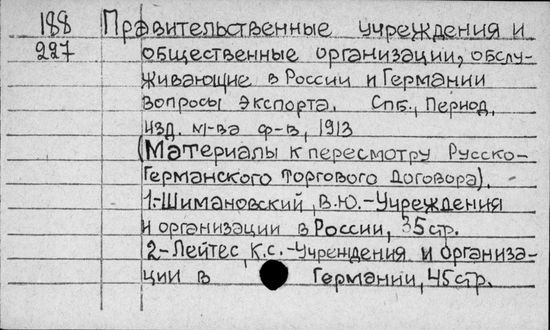 188 Правительственные учреждения и
227 общественные организации, обслу-
живающие в России и Германии
вопросы экспорта. Спб., Период.
изд. м-ва ф-в, 1913
(Материалы к пересмотру Русско-
Германского торгового договора).
1.-Шимановский, В.Ю.-Учреждения
и организации в России, 35 стр.
2-Лейтес, К.С.-Учреждения и организа-
ции в Германии, 45 стр.